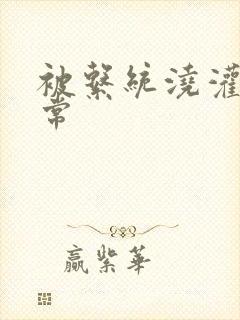 被繫統澆灌
常
贏紫華